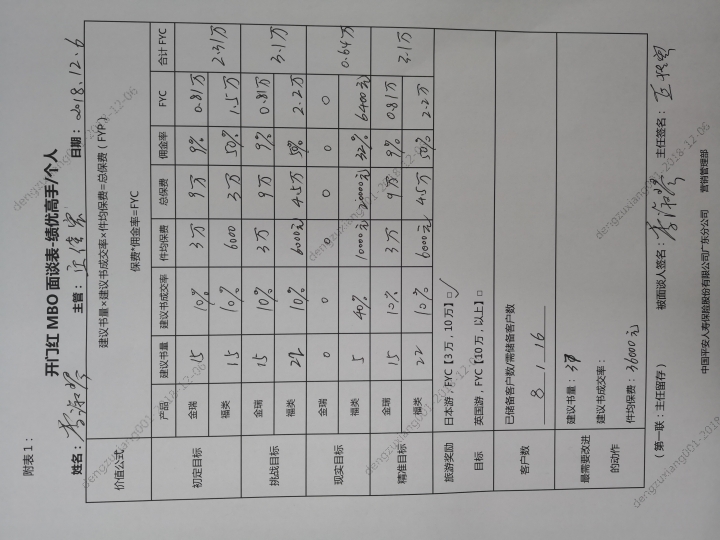 附表1：
开门红 MBO 面谈表-绩优高手/个人
姓名： 主管： 日期：2018.12.6
价值公式 建议书量×建议书成交率×件均保费=总保费（FYP）
保费*佣金率=FYC
产品 建议书量 建议书成交率 件均保费 总保费 佣金率 FYC 合计 FYC
初定目标 金瑞 15 10% 3万 9万 9% 0.81万 2.31万
福类 15 10% 6000 3万 50% 1.5万
挑战目标 金瑞 15 10% 3万 9万 9% 0.81万 3.1万
福类 22 10% 6000元 4.5万 50% 2.2万
现实目标 金瑞 0 0 0 0 0 0 0.64万
福类 5 40% 10000元 20000元 32% 6400元
精准目标 金瑞 15 10% 3万 9万 9% 0.81万 3.1万
福类 22 10% 6000元 4.5万 50% 2.2万
旅游奖励 日本游，FYC【3万，10万】□ ✓
目标 英国游，FYC【10万，以上】□
客户数 已储备客户数/需储备客户数
8 / 16
最需要改进 建议书量：37
的动作 建议书成交率：
件均保费：36000元
（第一联：主任留存） 被面谈人签名： 主任签名：
中国平安人寿保险股份有限公司广东分公司 营销管理部
dengzuxiang001-2018-12-06